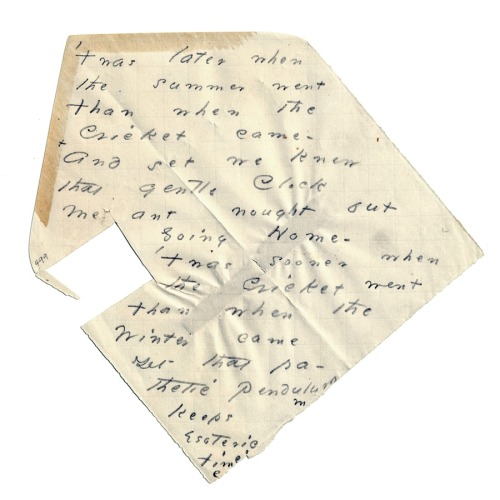 'twas later when
the summer went
than when the
Cricket came -
And yet we knew
that gentle Clock
meant nought but
Going Home -
'Twas sooner when
the Cricket went
than when the
Winter came
Yet that pa-
thetic Pendulum
keeps
Esoteric
time
499